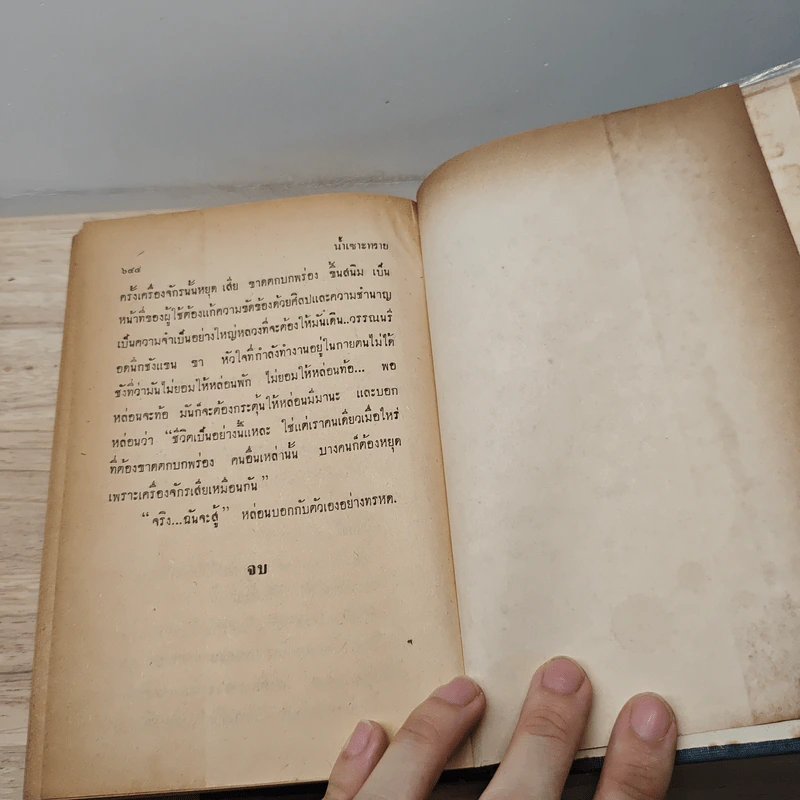 น้ำเซาะทราย
๖๔๔
ครั้งเครื่องจักรนั้นหยุด เสีย ขาดตกบกพร่อง ขึ้นสนิม เป็น
หน้าที่ของผู้ใช้ต้องแก้ความขัดข้องด้วยศิลปและความชำนาญ
เป็นความจำเป็นอย่างใหญ่หลวงที่จะต้องให้มันเดิน..วรรณนรี
อดนึกชังแขน ขา หัวใจที่กำลังทำงานอยู่ในกายตนไม่ได้
ชังที่ว่ามันไม่ยอมให้หล่อนพัก ไม่ยอมให้หล่อนท้อ... พอ
หล่อนจะท้อ มันก็จะต้องกระตุ้นให้หล่อนมีมานะ และบอก
หล่อนว่า “ชีวิตเป็นอย่างนี้แหละ ใช่แต่เราคนเดียวเมื่อไหร่
ที่ต้องขาดตกบกพร่อง คนอื่นเหล่านั้น บางคนก็ต้องหยุด
เพราะเครื่องจักรเสียเหมือนกัน”
“จริง...ฉันจะสู้” หล่อนบอกกับตัวเองอย่างทรหด.
จบ